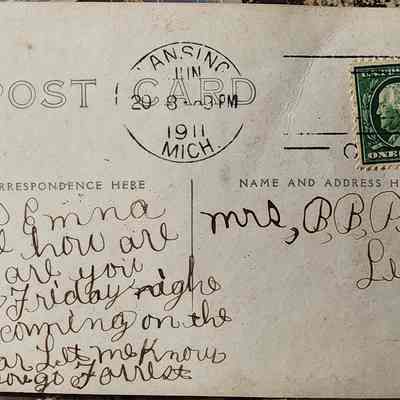 LANSING
JUN
20 8 PM
1911
MICH.
POST CARD
ONE
CORRESPONDENCE HERE
NAME AND ADDRESS H
Emma
how are
are you
Friday nighe
coming on the
ar Let me Know
Forrest
Mrs, B, B,
Le